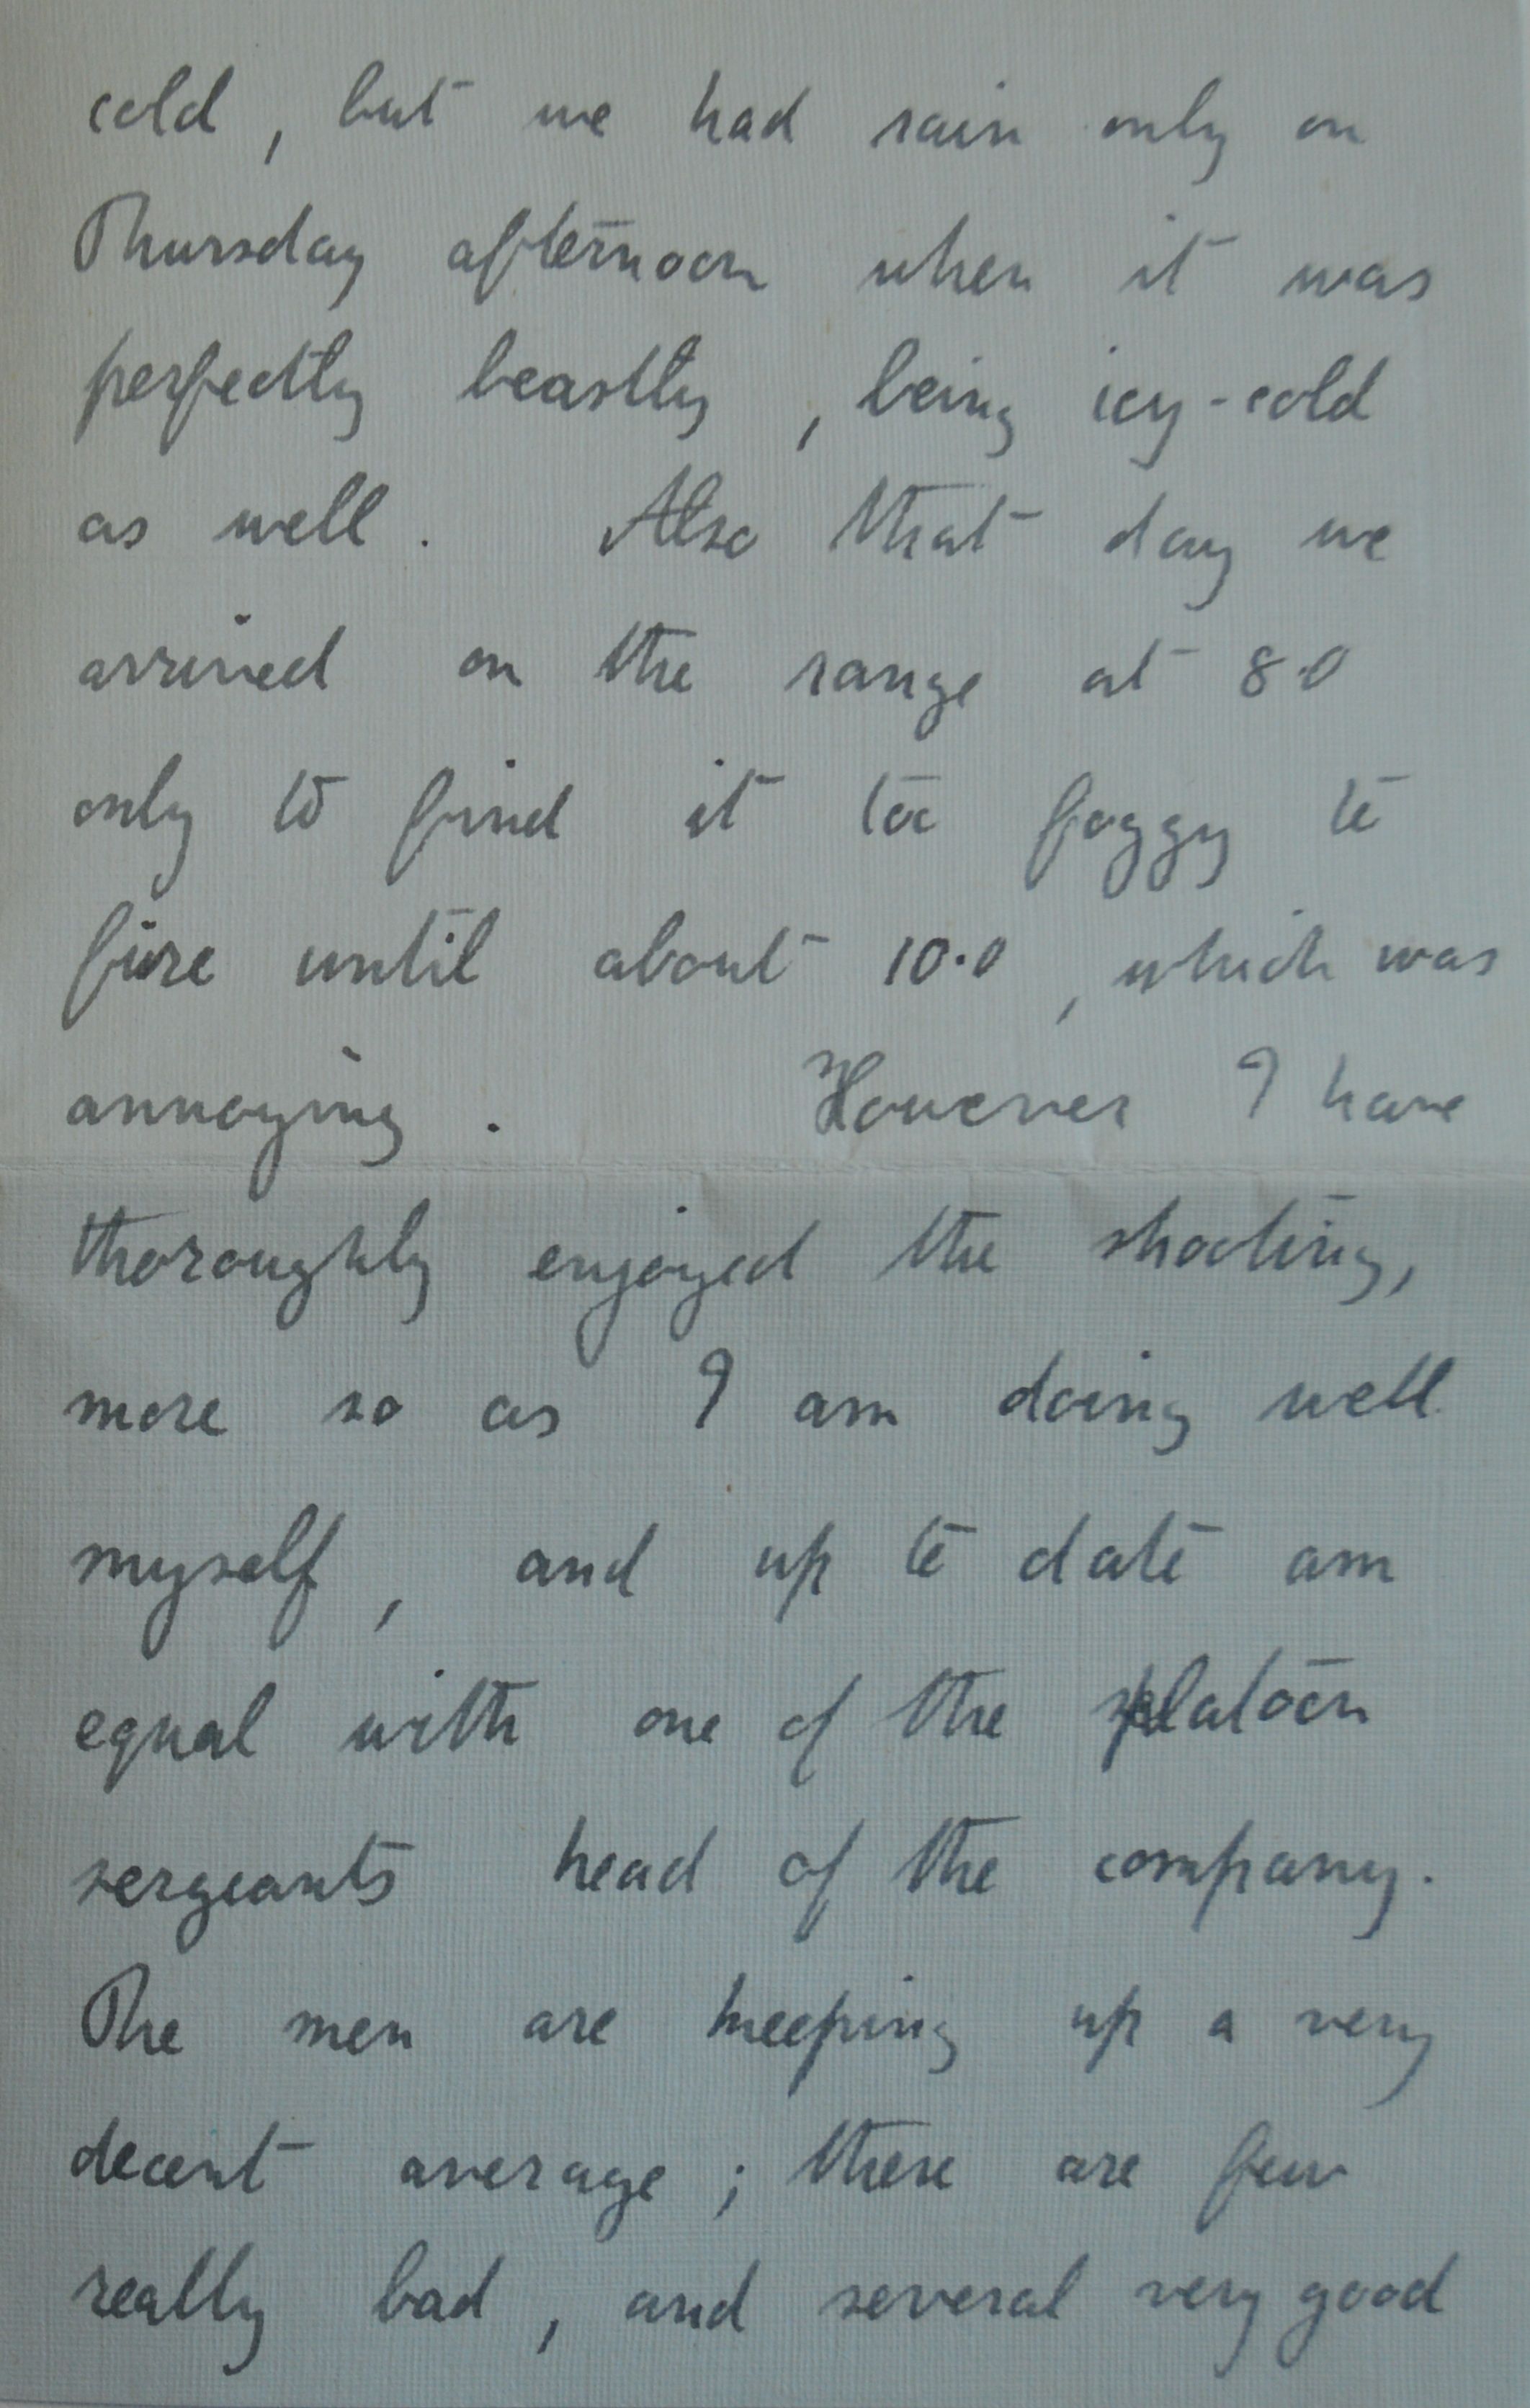 cold, but we had rain only on
Thursday afternoon when it was
perfectly beastly, being icy-cold
as well. Also that day we
arrived on the range at 8.0
only to find it too foggy to
fire until about 10.0, which was
annoying. However I have
thoroughly enjoyed the shooting,
more so as I am doing well
myself, and up to date am
equal with one of the platoon
sergeants head of the company.
The men are keeping up a very
decent average; there are few
really bad, and several very good